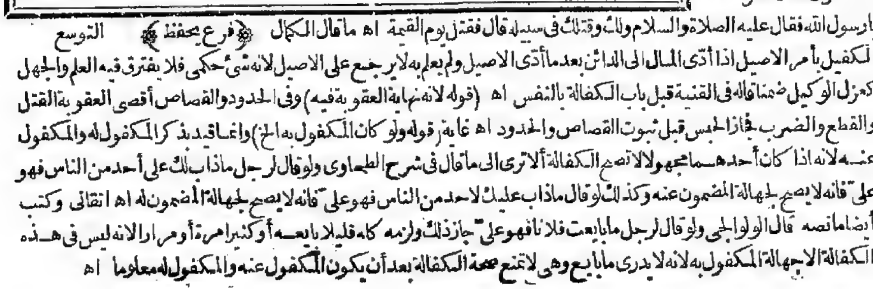 يارسول الله فقال عليه الصلاة والسلام ولك وقتلك في سبيله قال فقتل يوم القيمة اه ما قال الكمال ﴿فرع يحفظ﴾ التوسع
الكفيل بأمر الاصيل اذا أدى المال الى الدائن بعدما أدى الاصيل ولم يعلم به لا يرجع على الاصيل لانه شئ حكمي فلا يفترق فيه العلم والجهل
كعزل الوكيل ضمنا قاله في القنية قبل باب الكفالة بالنفس اه (قوله لانه نهاية العقوبة فيه) وفى الحدود والقصاص أقصى العقوبة القتل
والقطع والضرب فجاز الحبس قبل ثبوت القصاص والحدود اه غاية (قوله ولو كان المكفول به الخ) وانما قيد بذكر المكفول له والمكفول
عنه لانه اذا كان أحدهما مجهولا لا تصح الكفالة ألا ترى الى ما قال في شرح الطحاوى ولو قال لرجل ماذاب لك على أحد من الناس فهو
علىّ فانه لا يصح لجهالة المضمون عنه وكذلك لو قال ماذاب عليك لاحد من الناس فهو علىّ فانه لا يصح لجهالة المضمون له اه اتقانى وكتب
أيضا ما نصه قال الولوالجى ولو قال لرجل ما بايعت فلانا فهو علىّ جاز ذلك ولزمه كله قليلا بايعه أو كثيرا مرة أو مرارا لانه ليس في هذه
الكفالة الا جهالة المكفول به لانه لا يدرى ما بايع وهى لا تمنع صحة الكفالة بعد أن يكون المكفول عنه والمكفول له معلوما اه